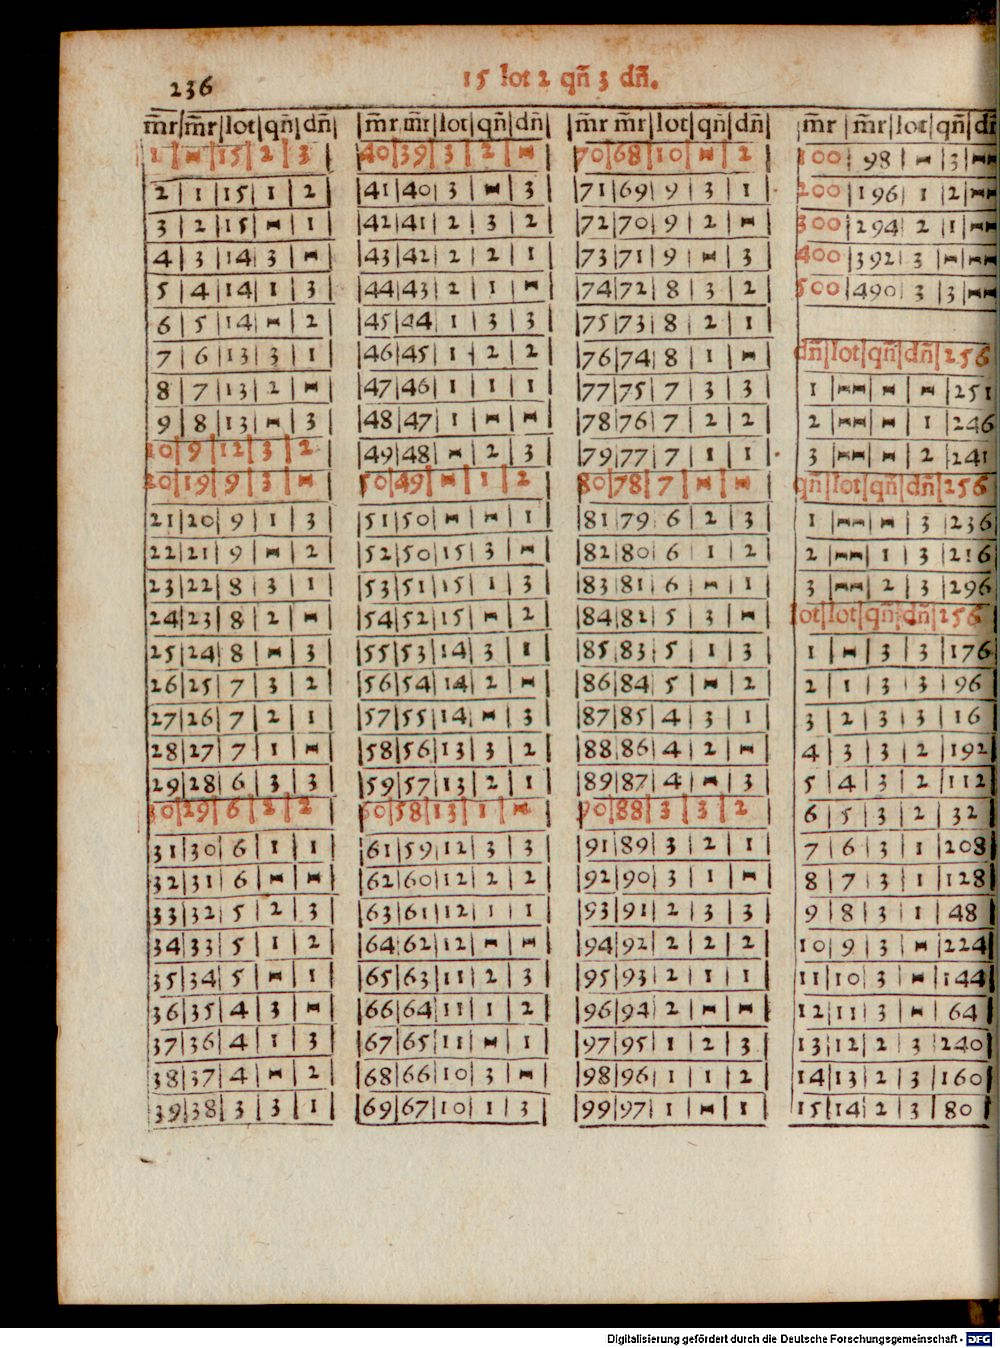 236
15 lot 2 qñ 3 dñ.
m̄r|m̄r|lot|qñ|dñ|
1 | - |15| 2 | 3
2 | 1 |15| 1 | 2
3 | 2 |15| - | 1
4 | 3 |14| 3 | -
5 | 4 |14| 1 | 3
6 | 5 |14| - | 2
7 | 6 |13| 3 | 1
8 | 7 |13| 2 | -
9 | 8 |13| - | 3
10| 9 |12| 3 | 2
20|19| 9 | 3 | -
21|20| 9 | 1 | 3
22|21| 9 | - | 2
23|22| 8 | 3 | 1
24|23| 8 | 2 | -
25|24| 8 | - | 3
26|25| 7 | 3 | 2
27|26| 7 | 2 | 1
28|27| 7 | 1 | -
29|28| 6 | 3 | 3
30|29| 6 | 2 | 2
31|30| 6 | 1 | 1
32|31| 6 | - | -
33|32| 5 | 2 | 3
34|33| 5 | 1 | 2
35|34| 5 | - | 1
36|35| 4 | 3 | -
37|36| 4 | 1 | 3
38|37| 4 | - | 2
39|38| 3 | 3 | 1
m̄r m̄r|lot|qñ|dñ|
40|39| 3 | 2 | -
41|40| 3 | - | 3
42|41| 2 | 3 | 2
43|42| 2 | 2 | 1
44|43| 2 | 1 | -
45|44| 1 | 3 | 3
46|45| 1 | 2 | 2
47|46| 1 | 1 | 1
48|47| 1 | - | -
49|48| - | 2 | 3
50|49| - | 1 | 2
51|50| - | - | 1
52|50|15| 3 | -
53|51|15| 1 | 3
54|52|15| - | 2
55|53|14| 3 | 1
56|54|14| 2 | -
57|55|14| - | 3
58|56|13| 3 | 2
59|57|13| 2 | 1
60|58|13| 1 | -
61|59|12| 3 | 3
62|60|12| 2 | 2
63|61|12| 1 | 1
64|62|12| - | -
65|63|11| 2 | 3
66|64|11| 1 | 2
67|65|11| - | 1
68|66|10| 3 | -
69|67|10| 1 | 3
m̄r m̄r|lot|qñ|dñ|
70|68|10| - | 2
71|69| 9 | 3 | 1
72|70| 9 | 2 | -
73|71| 9 | - | 3
74|72| 8 | 3 | 2
75|73| 8 | 2 | 1
76|74| 8 | 1 | -
77|75| 7 | 3 | 3
78|76| 7 | 2 | 2
79|77| 7 | 1 | 1
80|78| 7 | - | -
81|79| 6 | 2 | 3
82|80| 6 | 1 | 2
83|81| 6 | - | 1
84|82| 5 | 3 | -
85|83| 5 | 1 | 3
86|84| 5 | - | 2
87|85| 4 | 3 | 1
88|86| 4 | 2 | -
89|87| 4 | - | 3
90|88| 3 | 3 | 2
91|89| 3 | 2 | 1
92|90| 3 | 1 | -
93|91| 2 | 3 | 3
94|92| 2 | 2 | 2
95|93| 2 | 1 | 1
96|94| 2 | - | -
97|95| 1 | 2 | 3
98|96| 1 | 1 | 2
99|97| 1 | - | 1
m̄r |m̄r|lot|qñ|dñ
100| 98 | - | 3 | --
200|196| 1 | 2 | --
300|294| 2 | 1 | --
400|392| 3 | - | --
500|490| 3 | 3 | --
dñ|lot|qñ|dñ|256
1 | -- | - | - |251
2 | -- | - | 1 |246
3 | -- | - | 2 |241
qñ|lot|qñ|dñ|256
1 | -- | - | 3 |236
2 | -- | 1 | 3 |216
3 | -- | 2 | 3 |296
lot|lot|qñ|dñ|256
1 | - | 3 | 3 |176
2 | 1 | 3 | 3 | 96
3 | 2 | 3 | 3 | 16
4 | 3 | 3 | 2 |192
5 | 4 | 3 | 2 |112
6 | 5 | 3 | 2 | 32
7 | 6 | 3 | 1 |208
8 | 7 | 3 | 1 |128
9 | 8 | 3 | 1 | 48
10| 9 | 3 | - |224
11|10| 3 | - |144
12|11| 3 | - | 64
13|12| 2 | 3 |240
14|13| 2 | 3 |160
15|14| 2 | 3 | 80
Digitalisierung gefördert durch die Deutsche Forschungsgemeinschaft - DFG